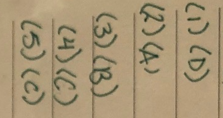 (1) (D)
(2) (A)
(3) (B)
(4) (C)
(5) (C)